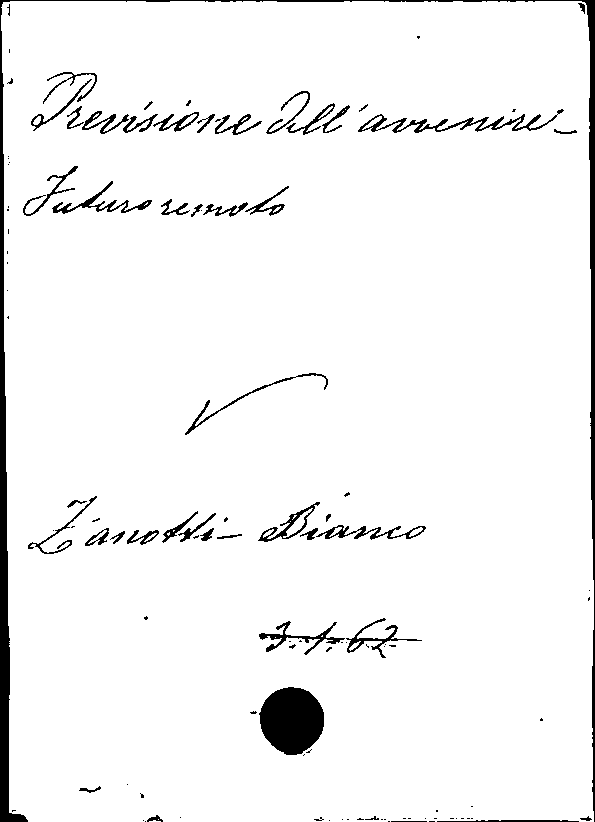 Previsione dell'avvenire -
Futuro remoto
Zanotti - Bianco
3.1.62